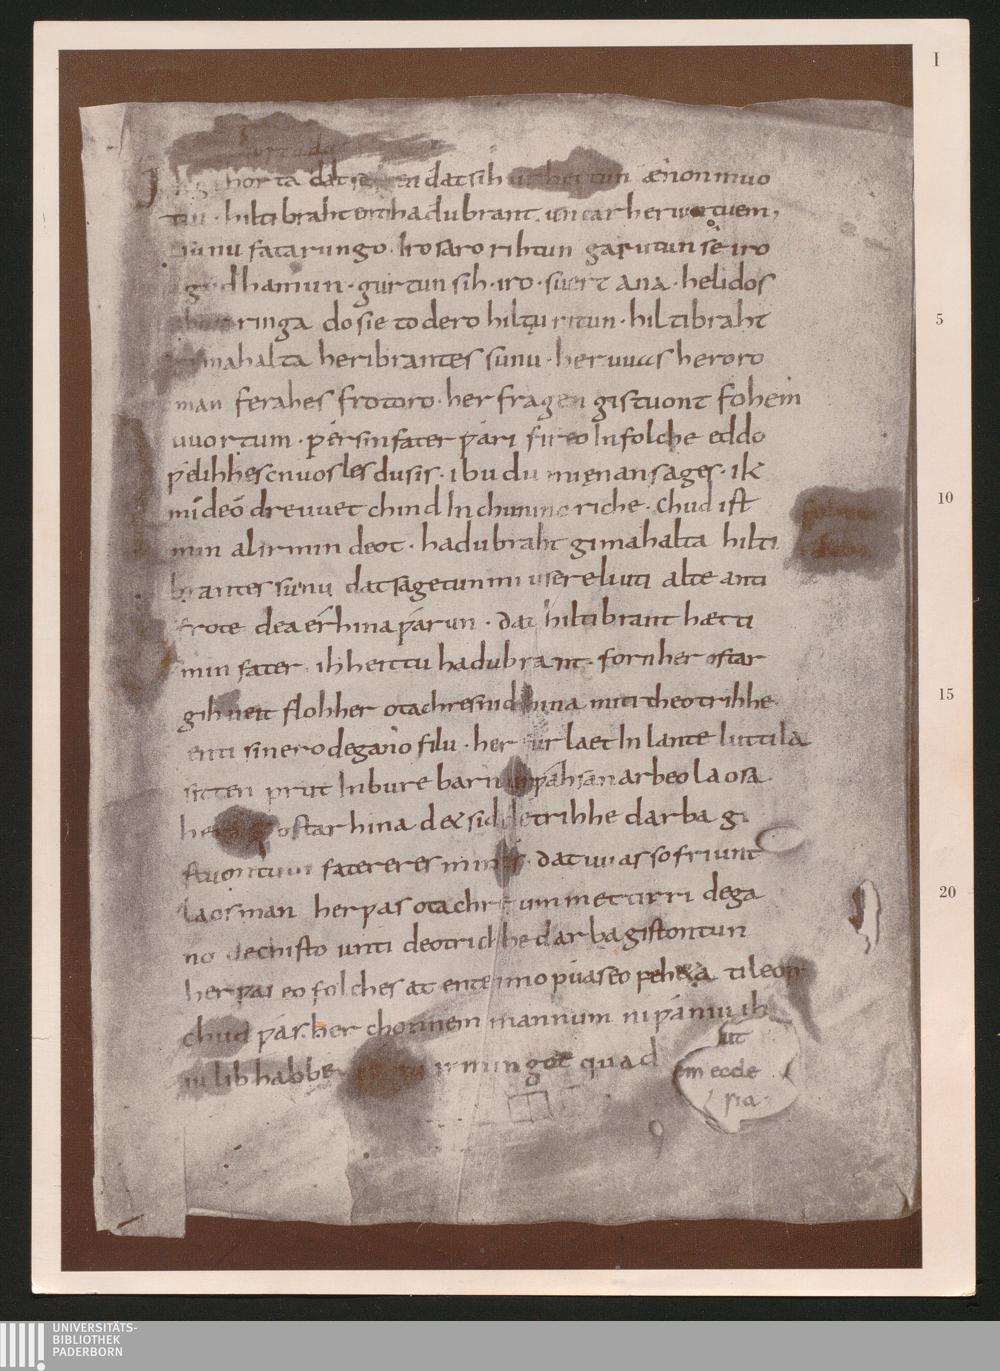 I
hortada
Ik gihorta dat seggen dat sih urhettun ænon muo
tin · hiltibraht enti hadubrant untar heriuntuem,
sunu fatarungo · iro saro rihtun garutun sê iro
gudhamun · gurtun sih · iro · suert ana · helidos
5
ringa do sie to dero hiltu ritun · hiltibraht
gimahalta heribrantes sunu · her uuas heroro
man ferahes frotoro · her fragen gistuont fohem
uuortum · ƿer sin fater ƿari fireo In folche eddo
ƿelihhes cnuosles du sis · ibu du mi ęnan sages · ik
10
mi deo dre uuet chind In chunincriche · Chud ist
min al irmin deot · hadubraht gimahalta hilti
brantes sunu dat sagetun mi usere liuti alte anti
frote dea érhina ƿarun · dat hiltibrant hætti
min fater · ih heittu hadubrant · forn her ostar
15
gihueit floh her otachres nid hina miti theotrihhe
enti sinero degano filu · her furlaet In lante luttila
sitten prut In bure barn unƿahsan arbeo laosa
ostar hina d& sid detrihhe darba gi
stuontum fatereres mines · dat uuas so friunt
20
laos man her ƿas otachre ummet tirri dega
no dechisto unti deotrichhe darba gistontun
her ƿas eo folches at ente imo ƿuas eo feh&a ti leop
chud ƿas her chonnem mannum ni ƿaniu ih
iu lib habbe irmingot quad
ut
em eccle
sia
UNIVERSITÄTS-
BIBLIOTHEK
PADERBORN